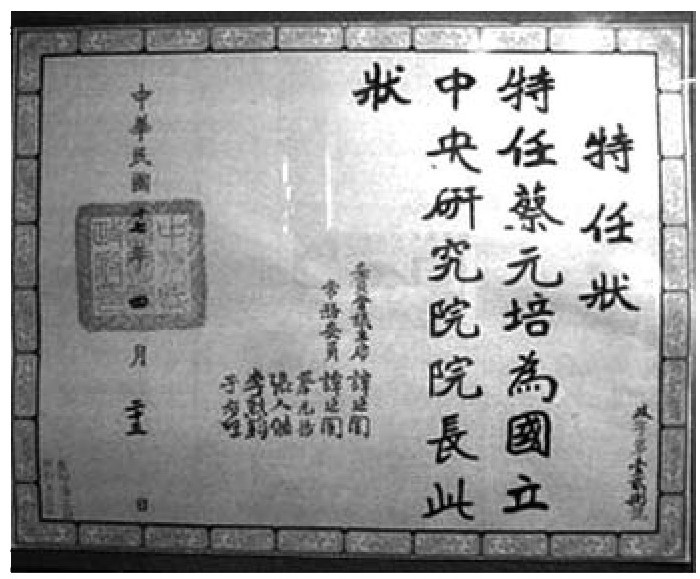 特任狀
特任蔡元培為國立
中央研究院院長此
狀
委員會議主席 譚延闿
常務委員 譚延闿
蔡元培
張人傑
李烈鈞
于右任
中華民國十七年四月二十三日